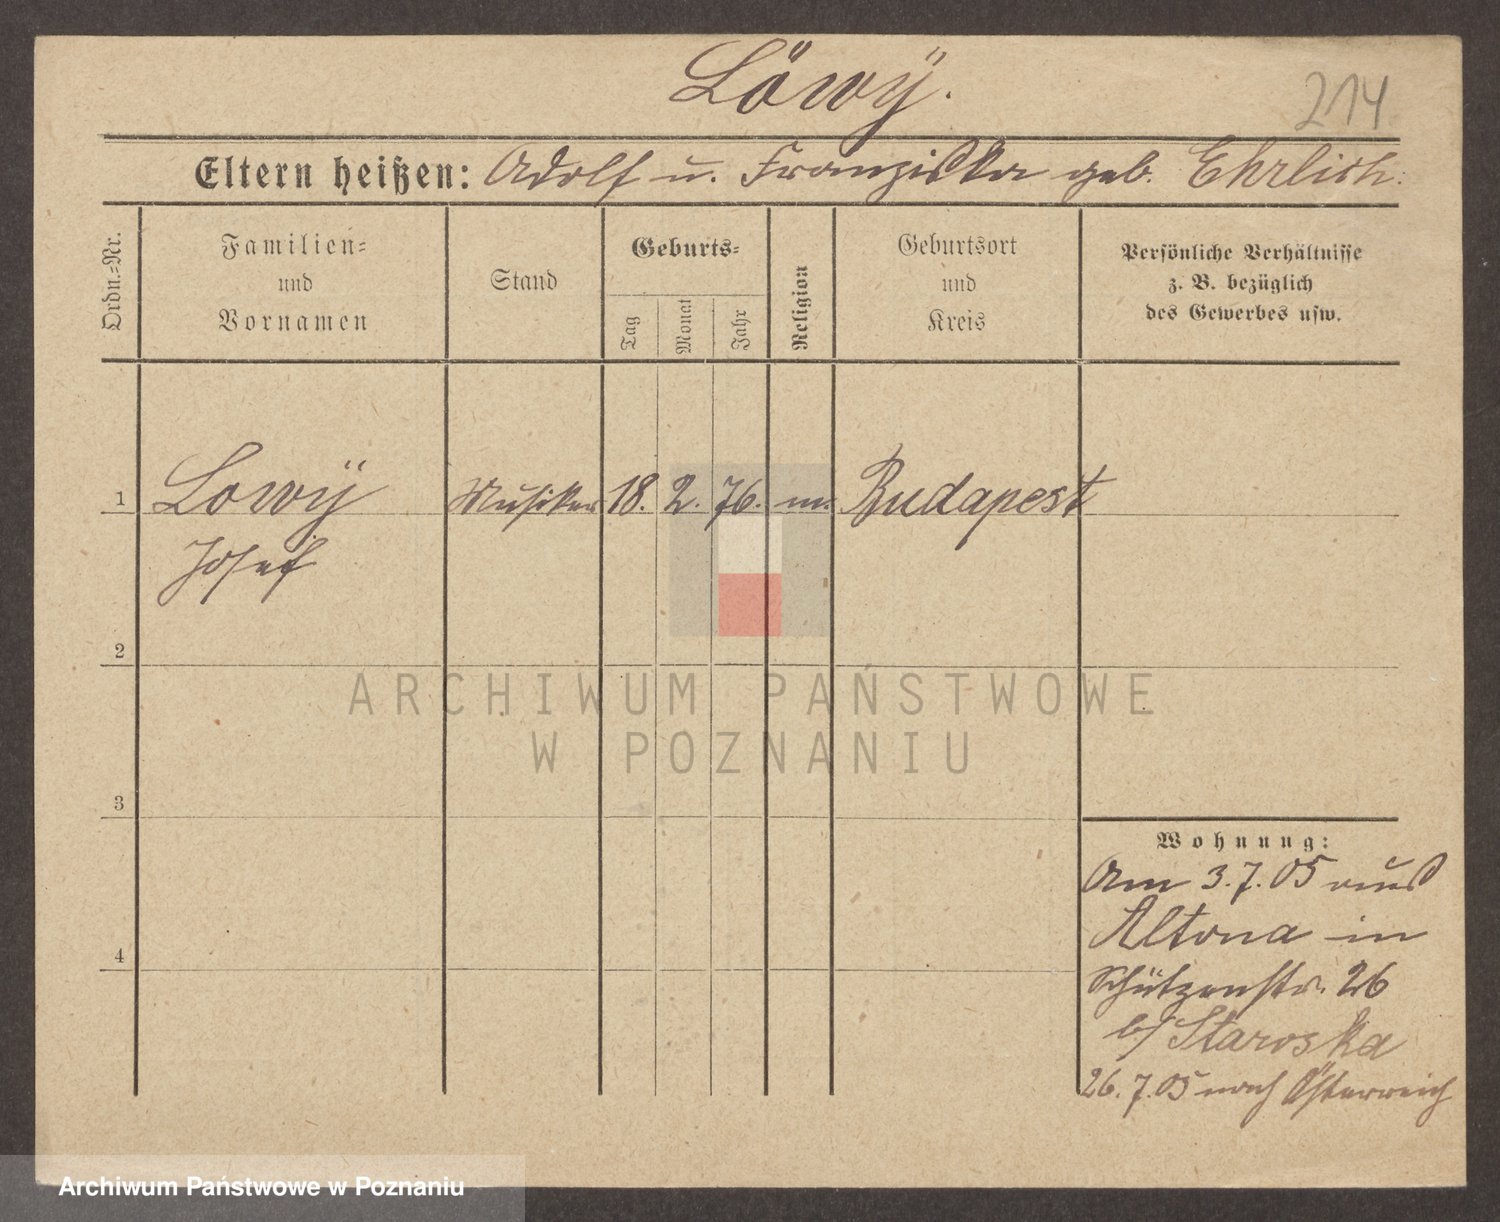 Löwÿ.
214
Eltern heißen: Adolf u. Franziska geb. Ehrlich.
Ordn.=Nr.
Familien=
und
Vornamen
Stand
Geburts=
Tag
Monat
Jahr
Religion
Geburtsort
und
Kreis
Persönliche Verhältnisse
z. B. bezüglich
des Gewerbes usw.
1 Lowÿ Musiker 18. 2. 76. m. Budapest
Josef
2
3
4
ARCHIWUM PAŃSTWOWE
W POZNANIU
Wohnung:
Am 3.7.05 aus
Altona in
Schützenstr. 26
b/ Staroska
26.7.05 nach Österreich
Archiwum Państwowe w Poznaniu